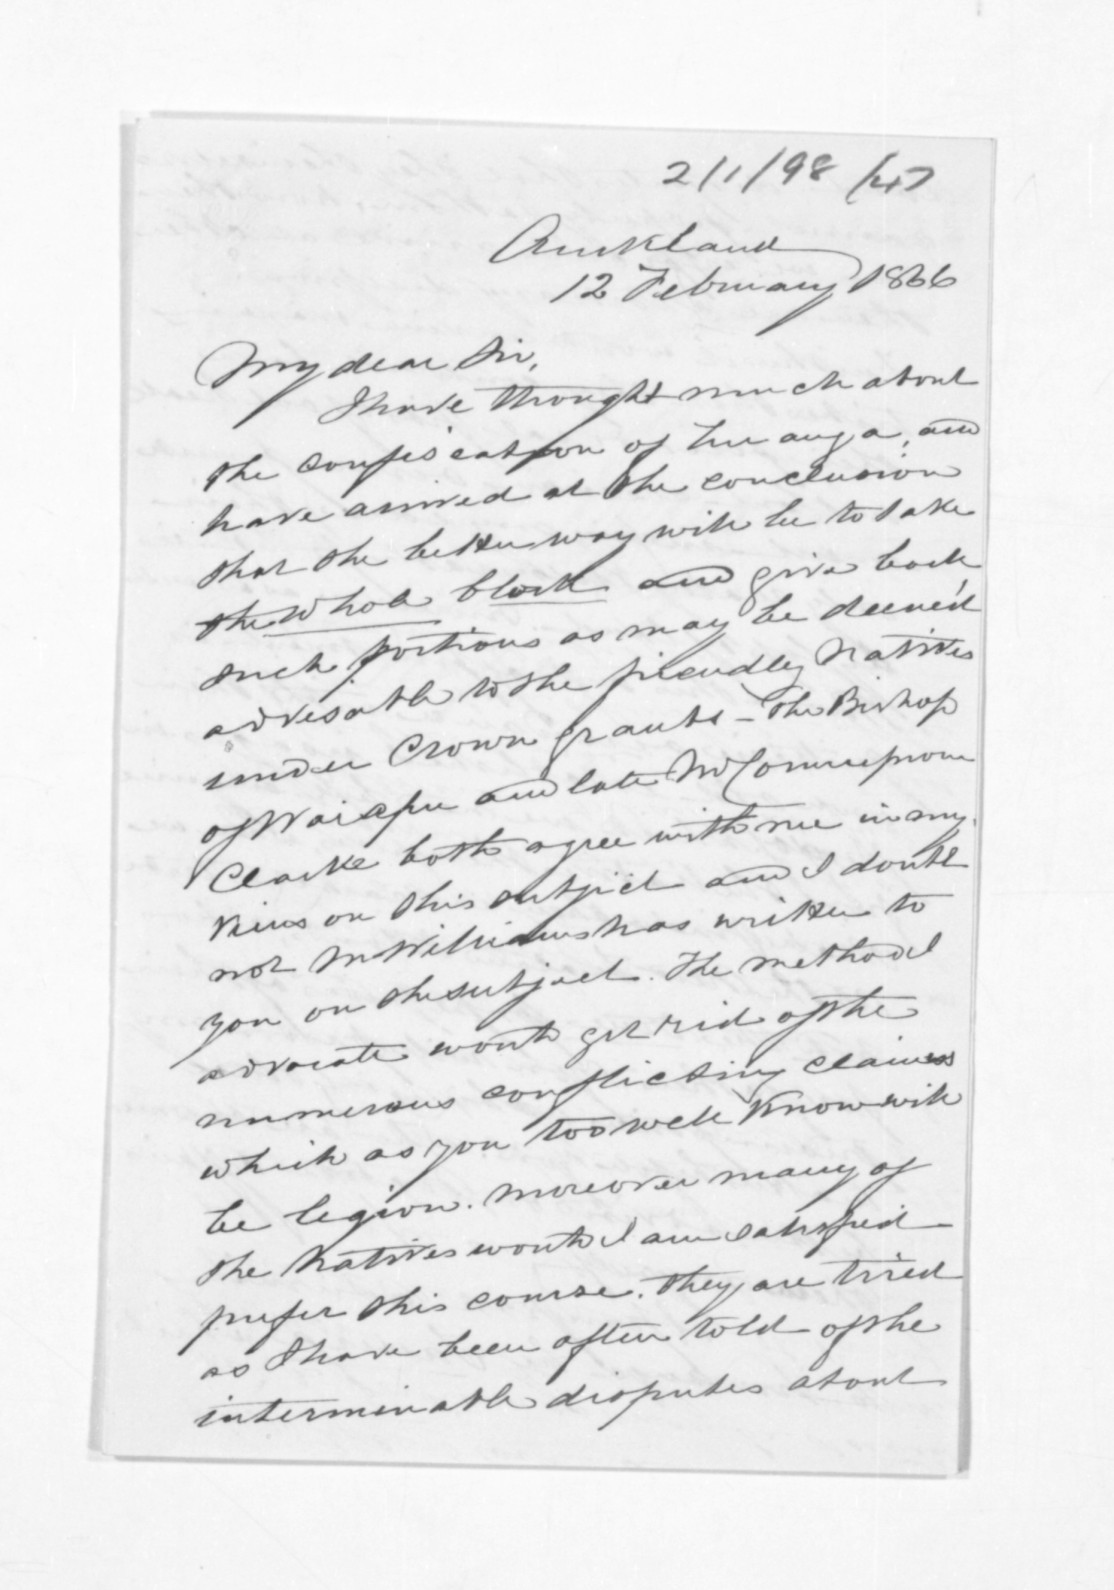 2/1/98 /47
Auckland
12 February 1866
My dear Sir,
I have thought much about
the confiscation of Turanga, and
have arrived at the conclusion
that the better way will be to take
the whole block and give back
such portions as may be deemed
advisable to the friendly Natives
under Crown grants - The Bishop
of Waiapu and late Mr Commr from
Clarke both agree with me in my
views on this subject and I doubt
not Mr Williams has written to
you on the subject. The method I
advocate would get rid of the
numerous conflicting claims
which as you too well know will
be legion. Moreover many of
the Natives would I am satisfied
prefer this course. They are tired
as I have been often told of the
interminable disputes about